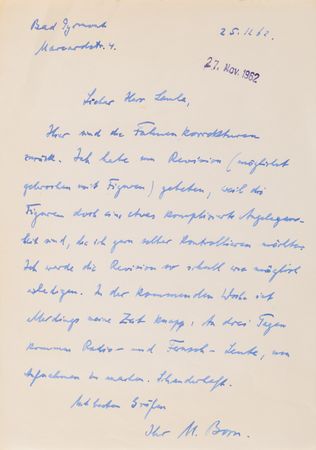 Bad Pyrmont
Marcardstr. 4.
25. 11. 62.
27. Nov. 1962
Lieber Herr
Hier sind die Fahnenkorrekturen
zurück. Ich habe um Revision (möglichst
gebrochen mit Figuren) gebeten, weil die
Figuren doch eine etwas komplizierte Angelegen-
heit sind, die ich gern selber kontrollieren möchte.
Ich werde die Revision so schnell wie möglich
erledigen. In der kommenden Woche ist
allerdings meine Zeit knapp; an drei Tagen
kommen Radio- und Fernseh-Leute, um
Aufnahmen zu machen. Schauderhaft.
Mit besten Grüßen
Ihr M. Born.